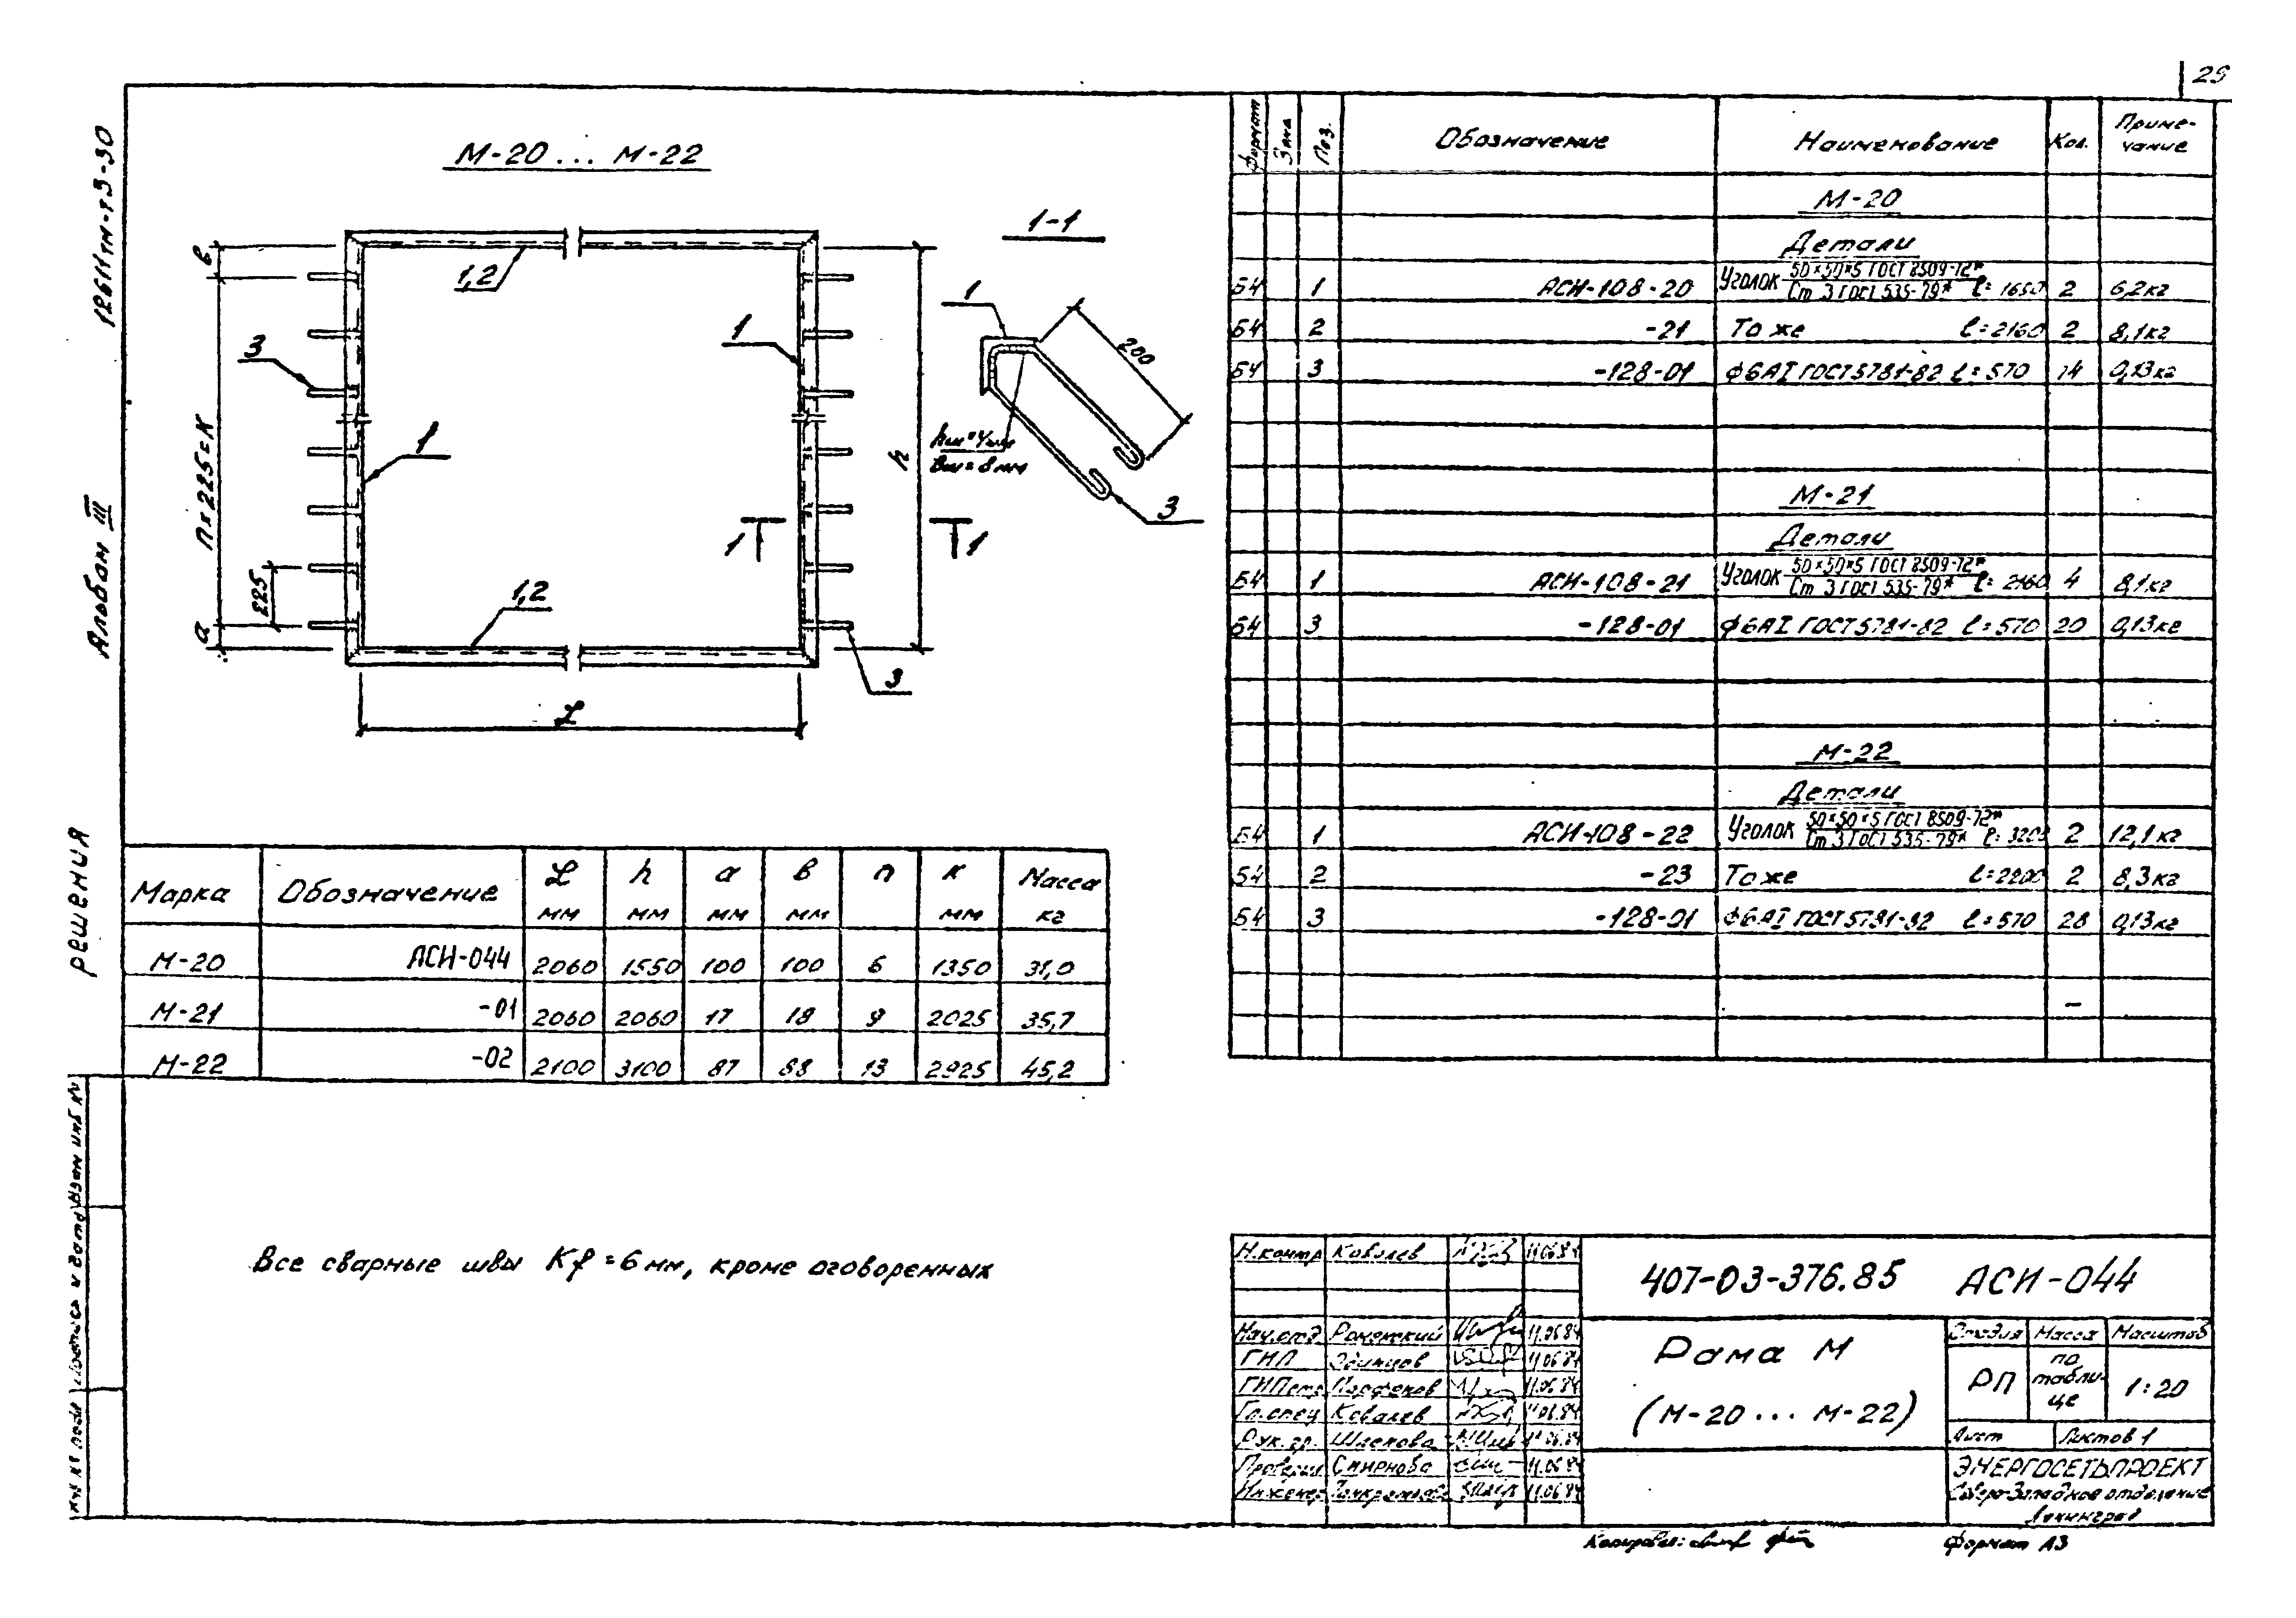 25
12611тм-т3-30
Альбом III
решения
М-20 ... М-22
1-1
в
1,2
1
3
1
n×225=К
225
а
h
1 1
1,2
3
L
1
200
hш=4мм
вш=8мм
3
Марка Обозначение L мм h мм а мм в мм n К мм Масса кг
М-20 АСИ-044 2060 1550 100 100 6 1350 31,0
М-21 -01 2060 2060 17 18 9 2025 35,7
М-22 -02 2100 3100 87 88 13 2925 45,2
Все сварные швы Kf = 6 мм, кроме оговоренных
Формат Зона Поз. Обозначение Наименование Кол. Приме-
чание
М-20
Детали
Б4 1 АСИ-108-20 Уголок 50×50×5 ГОСТ 8509-72* / Ст 3 ГОСТ 535-79* ℓ=1650 2 6,2кг
Б4 2 -21 То же ℓ=2160 2 8,1кг
Б4 3 -128-01 ф6АI ГОСТ 5781-82 ℓ=570 14 0,13кг
М-21
Детали
Б4 1 АСИ-108-21 Уголок 50×50×5 ГОСТ 8509-72* / Ст 3 ГОСТ 535-79* ℓ=2160 4 8,1кг
Б4 3 -128-01 ф6АI ГОСТ 5781-82 ℓ=570 20 0,13кг
М-22
Детали
Б4 1 АСИ-108-22 Уголок 50×50×5 ГОСТ 8509-72* / Ст 3 ГОСТ 535-79* ℓ=3200 2 12,1кг
Б4 2 -23 То же ℓ=2200 2 8,3кг
Б4 3 -128-01 ф6АI ГОСТ 5781-82 ℓ=570 28 0,13кг
Н.контр Ковалев 11.06.84
Нач.отд. Роменский 11.06.84
ГИП Одинцов 11.06.84
ГИПстр Парфенов 11.06.84
Гл.спец Ковалев 11.06.84
Рук.гр. 11.06.84
Проверил Смирнова 11.06.84
Инженер 11.06.84
407-03-376.85 АСИ-044
Рама М
(М-20 ... М-22)
Стадия Масса Масштаб
РП по
табли-
це 1:20
Лист Листов 1
ЭНЕРГОСЕТЬПРОЕКТ
Северо-Западное отделение
Ленинград
Копировал:
Формат А3
Инв № подл Подпись и дата Взам инв №